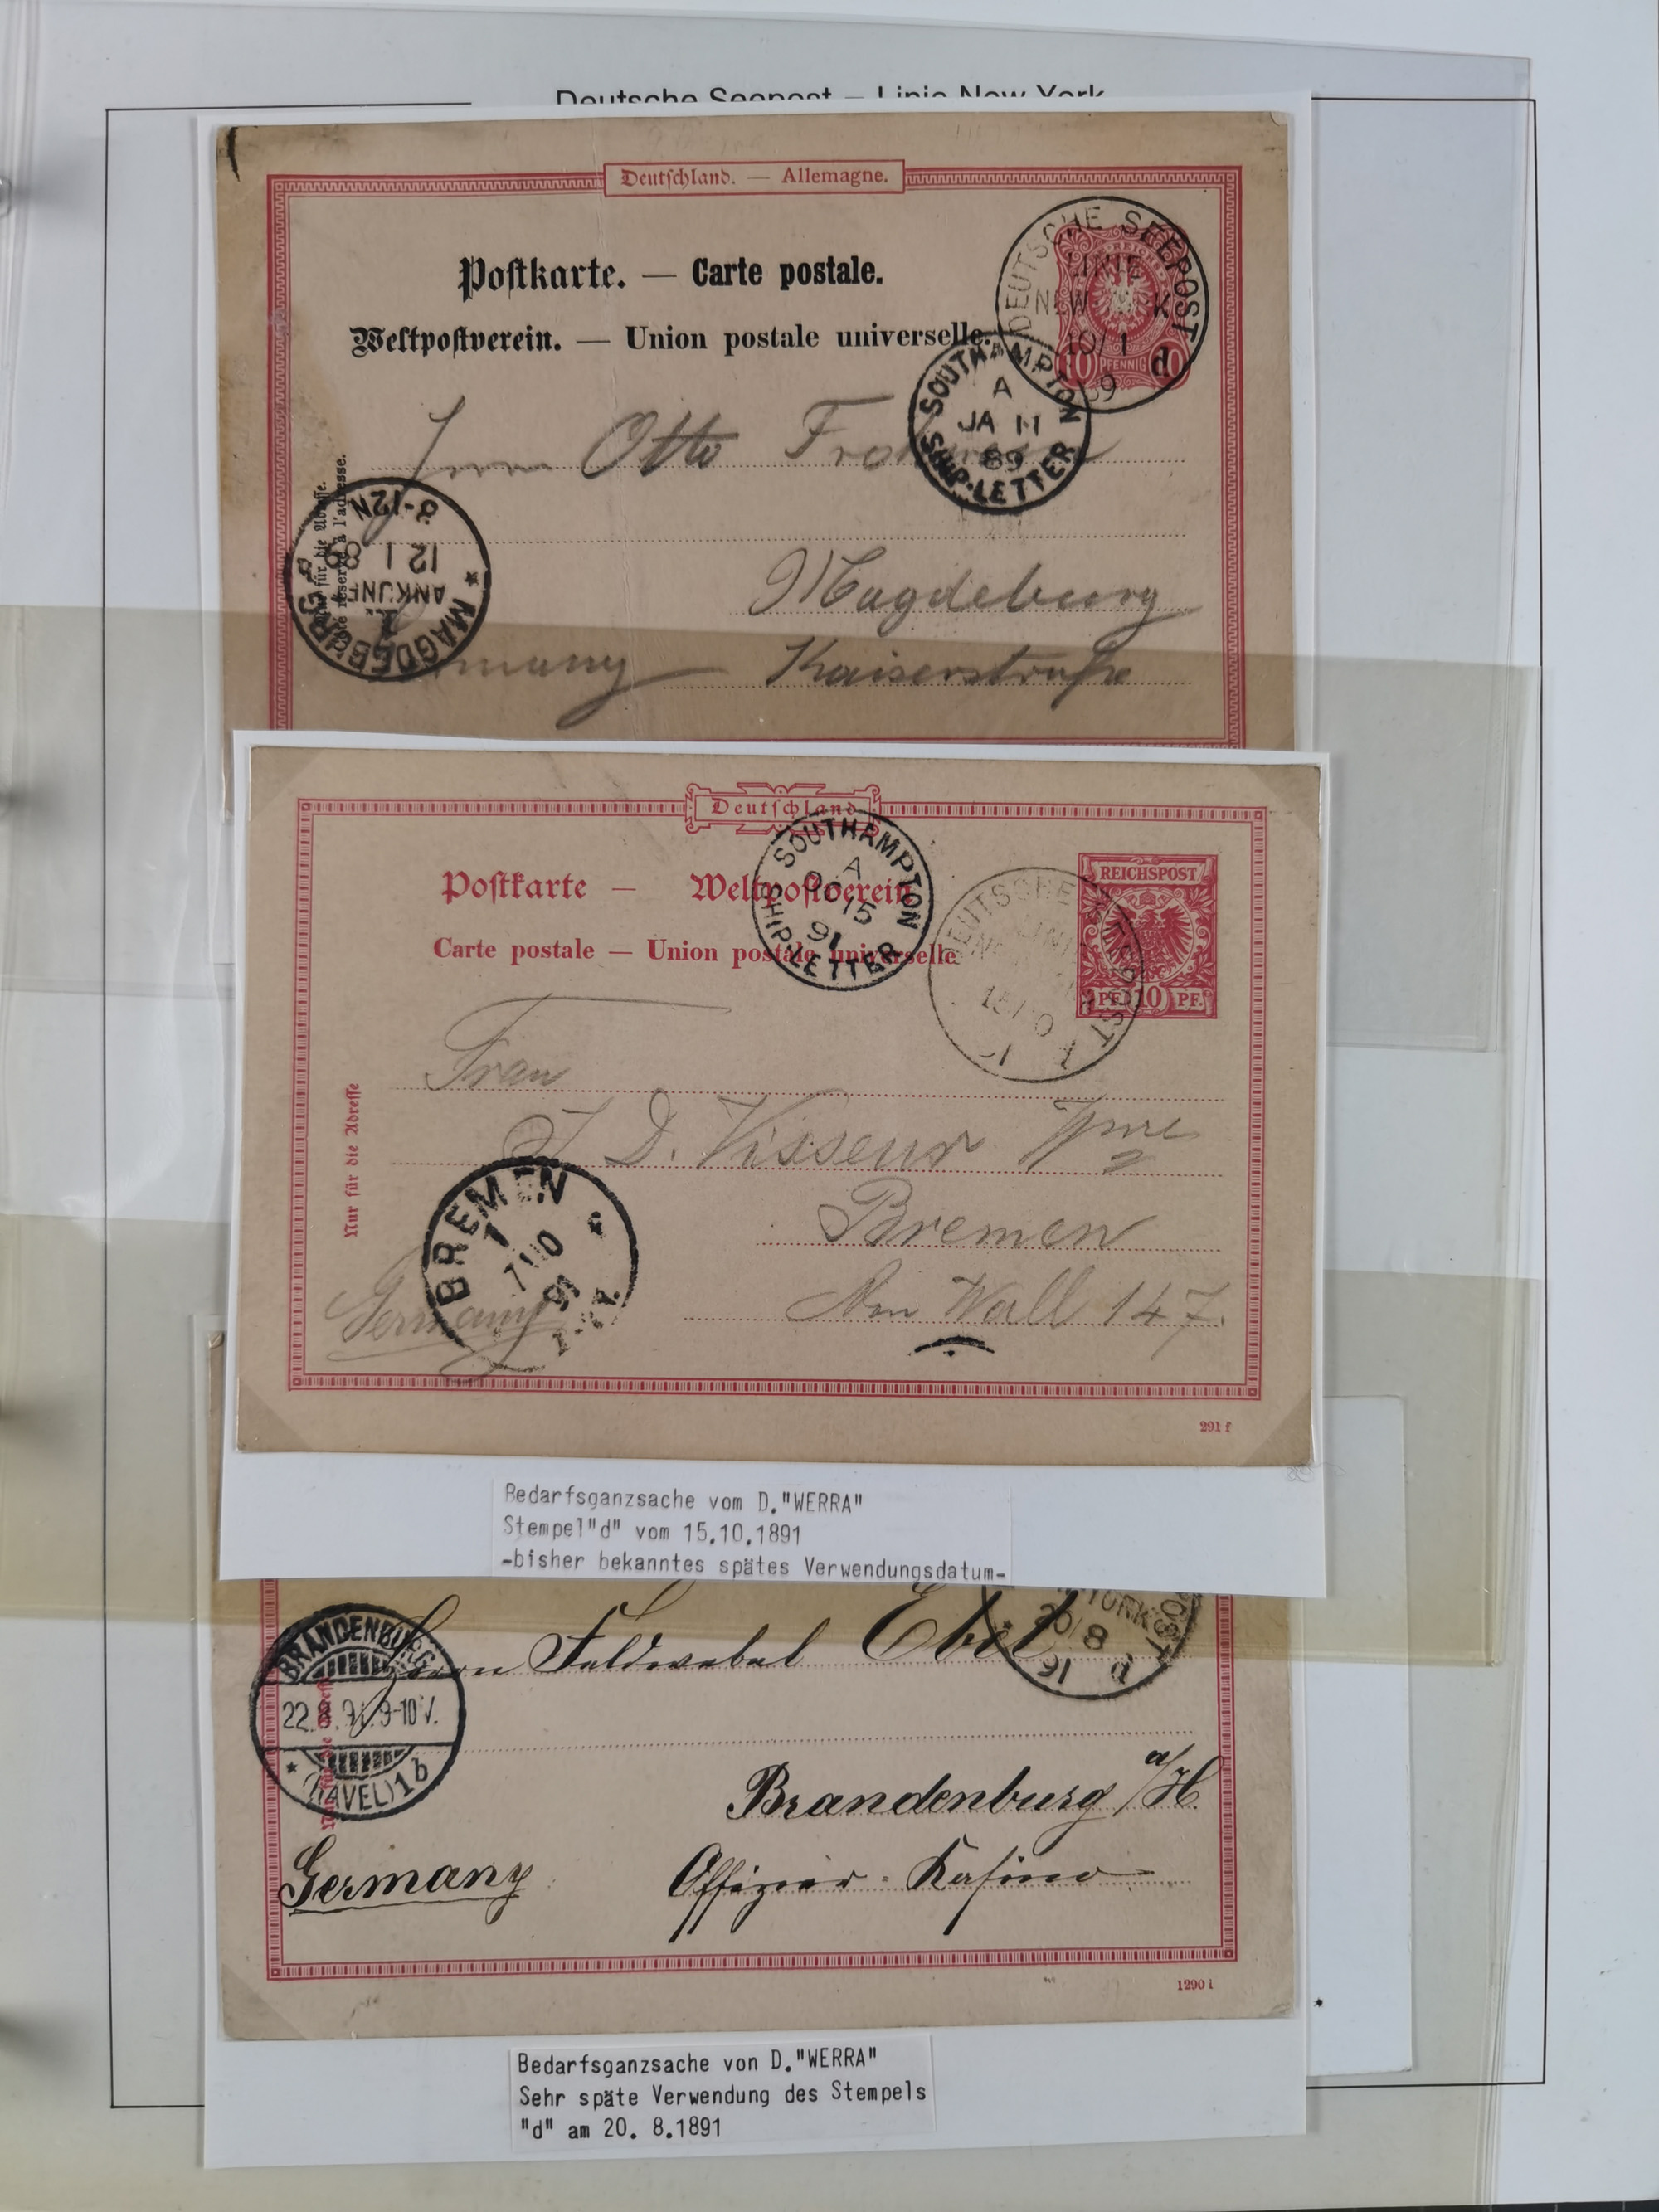 Deutsche Seepost – Linie New York
Deutschland. — Allemagne.
Postkarte. — Carte postale.
Weltpostverein. — Union postale universelle.
DEUTSCHE SEEPOST
LINIE
NEW YORK
10/1
89
d
10 PFENNIG 10
SOUTHAMPTON
A
JA 11
89
SHIP-LETTER
Otto
Magdeburg
Kaiserstraße
MAGDEBURG
ANKUNFT
12 1 89
8-12N
Deutschland
Postkarte — Weltpostverein
Carte postale — Union postale universelle
SOUTHAMPTON
A
OC 15
91
SHIP-LETTER
DEUTSCHE SEEPOST
LINIE
15/10
REICHSPOST
PF. 10 PF.
Nur für die Adresse
Frau
J D. Visseur
Bremen
Am Wall 147.
Germany
BREMEN
1
91
291 f
Bedarfsganzsache vom D."WERRA"
Stempel"d" vom 15.10.1891
-bisher bekanntes spätes Verwendungsdatum-
YORK
20/8
91
d
BRANDENBURG
22.8.91.9-10V.
(HAVEL) 1b
Herrn Feldwebel Ebel
Brandenburg a/H.
Germany
Offizier-Kasino
1290 i
Bedarfsganzsache von D."WERRA"
Sehr späte Verwendung des Stempels
"d" am 20. 8.1891